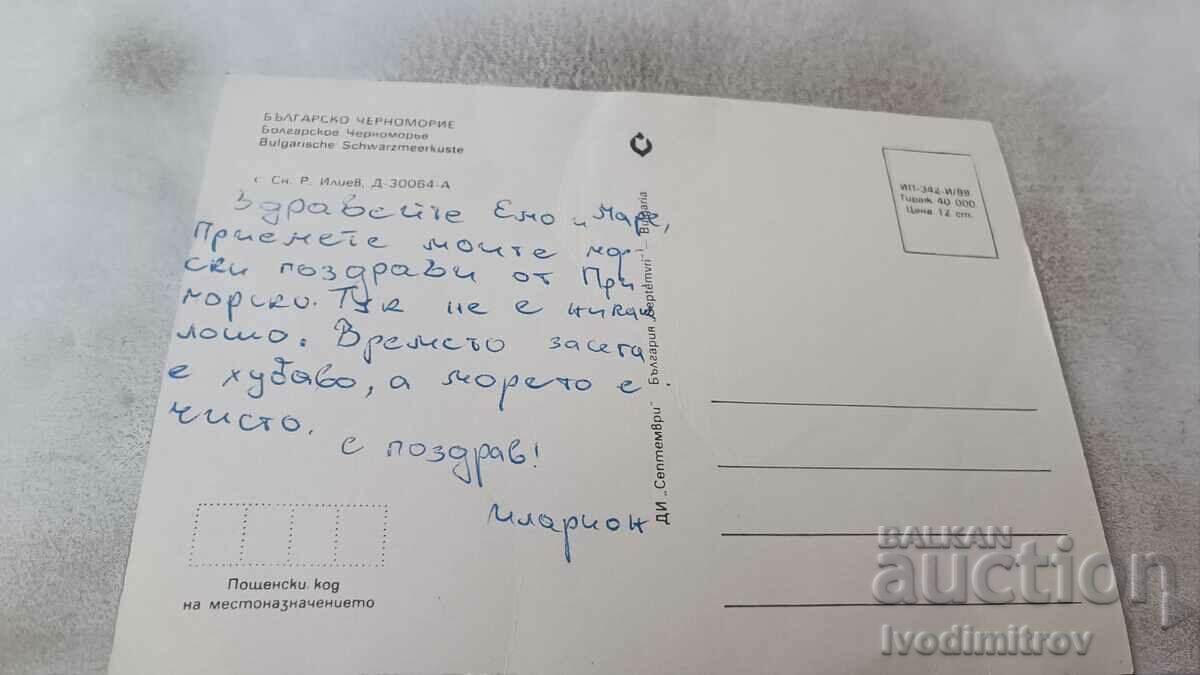 БЪЛГАРСКО ЧЕРНОМОРИЕ
Болгарское Черноморье
Bulgarische Schwarzmeerküste
с Сн. Р. Илиев, Д-30064-А
Здравейте Емо и Маре,
Приемете моите мор-
ски поздрави от При-
морско. Тук не е никак
лошо. Времето засега
е хубаво, а морето е
чисто.
с поздрав!
Иларион
Пощенски код
на местоназначението
ДИ „Септември" България „Septemvri" – Bulgaria
ИП-342-И/89
Тираж 40 000
Цена 12 ст.
BALKAN
auction
Ivodimitrov